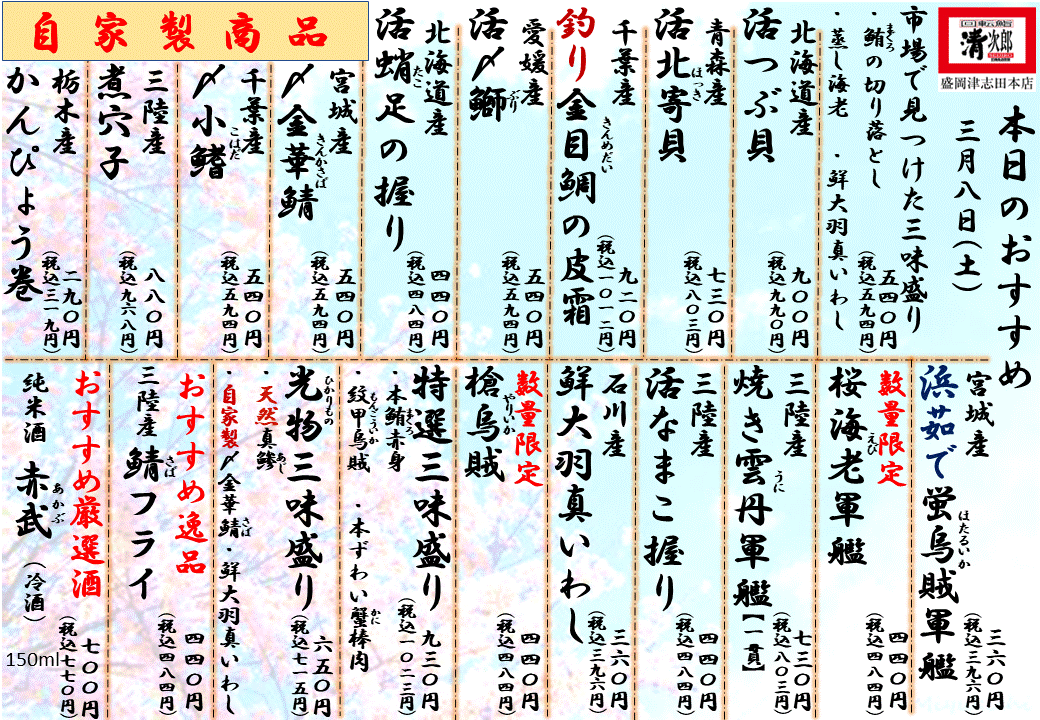 回転鮨
清次郎
盛岡津志田本店
本日のおすすめ
三月八日(土)
市場で見つけた三味盛り
・鮪の切り落とし
まぐろ
・蒸し海老 ・鮮大羽真いわし
五四〇円
(税込五九四円)
北海道産
活つぶ貝
九〇〇円
(税込九九〇円)
青森産
活北寄貝
ほっき
七三〇円
(税込八〇三円)
千葉産
釣り金目鯛の皮霜
きんめだい
九二〇円
(税込一〇一二円)
愛媛産
活〆鰤
ぶり
五四〇円
(税込五九四円)
北海道産
活蛸足の握り
たこ
四四〇円
(税込四八四円)
自家製商品
宮城産
〆金華鯖
きんかさば
五四〇円
(税込五九四円)
千葉産
〆小鰭
こはだ
五四〇円
(税込五九四円)
三陸産
煮穴子
八八〇円
(税込九六八円)
栃木産
かんぴょう巻
二九〇円
(税込三一九円)
宮城産
浜茹で蛍烏賊軍艦
ほたるいか
三六〇円
(税込三九六円)
数量限定
桜海老軍艦
えび
四四〇円
(税込四八四円)
三陸産
焼き雲丹軍艦【一貫】
うに
七三〇円
(税込八〇三円)
三陸産
活なまこ握り
四四〇円
(税込四八四円)
石川産
鮮大羽真いわし
三六〇円
(税込三九六円)
数量限定
槍烏賊
やりいか
四四〇円
(税込四八四円)
特選三味盛り
・本鮪赤身
まぐろ
・紋甲烏賊 ・本ずわい蟹棒肉
もんごういか
かに
九三〇円
(税込一〇二三円)
光物三味盛り
ひかりもの
・天然真鯵
あじ
・自家製〆金華鯖 ・鮮大羽真いわし
さば
六五〇円
(税込七一五円)
おすすめ逸品
三陸産鯖フライ
さば
四四〇円
(税込四八四円)
おすすめ厳選酒
純米酒 赤武 (冷酒)
あかぶ
150ml
七〇〇円
(税込七七〇円)